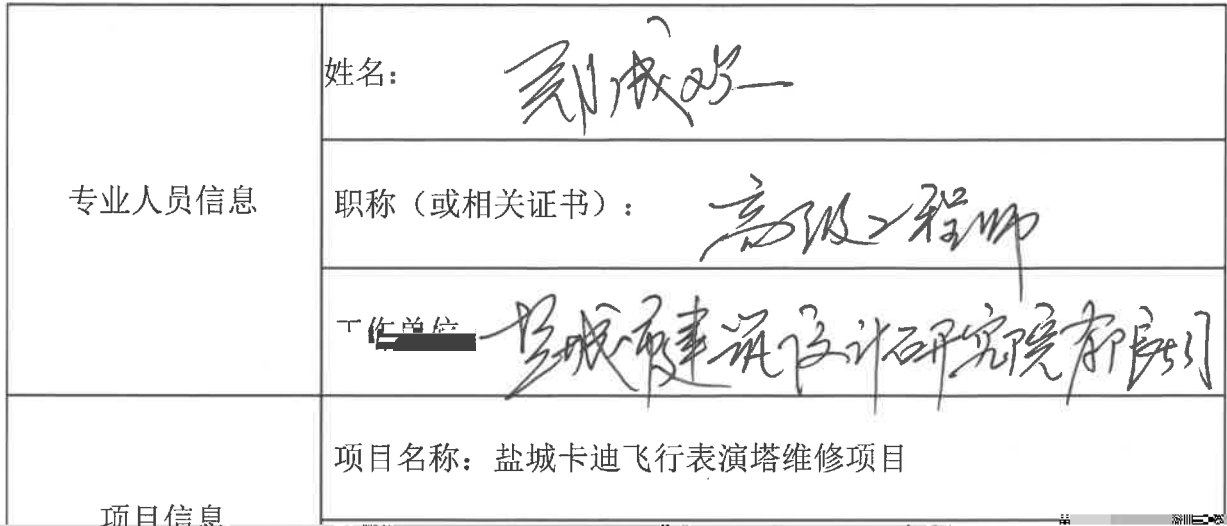 专业人员信息
姓名：
职称（或相关证书）：高级工程师
工作单位 盐城市建筑设计研究院有限公司
项目信息
项目名称：盐城卡迪飞行表演塔维修项目